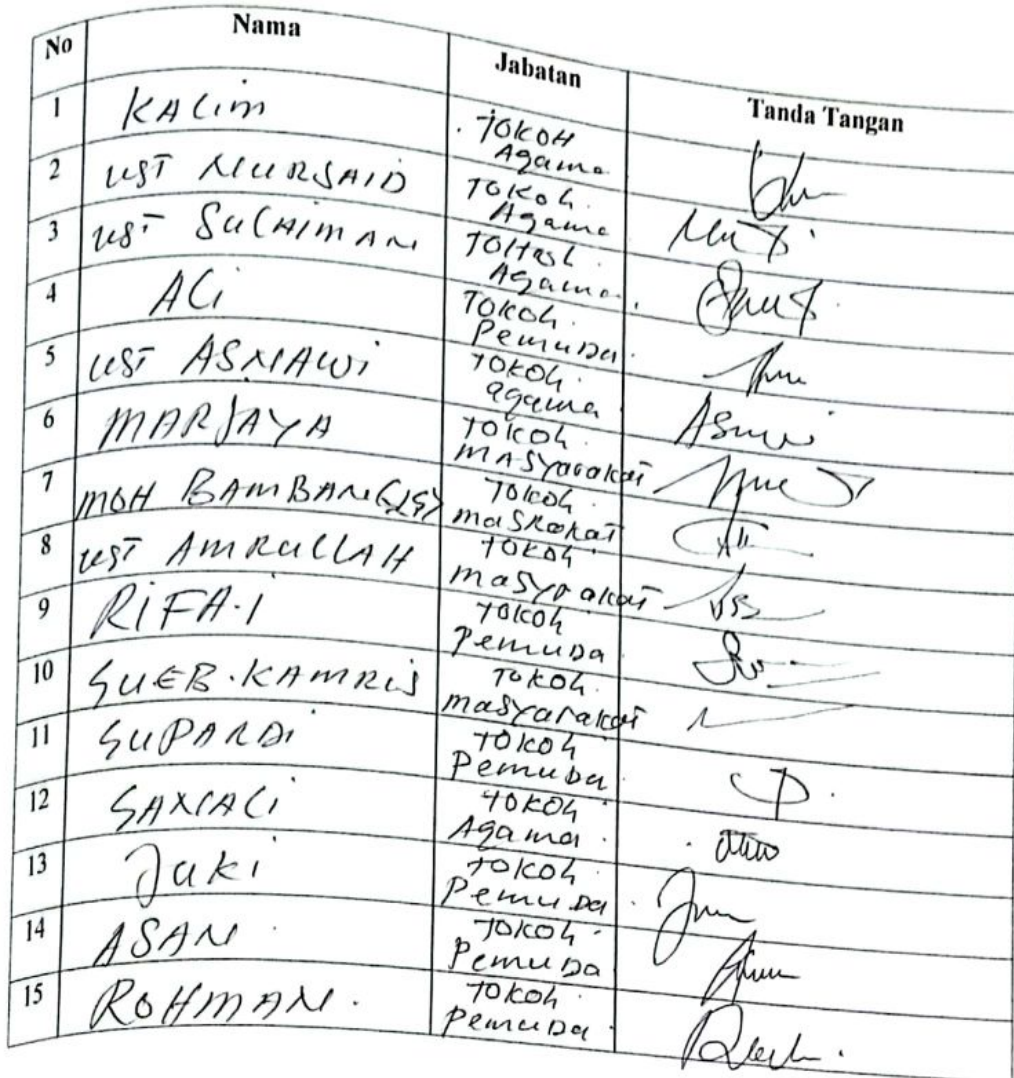 No Nama Jabatan Tanda Tangan
1 KALim TOKOH
Agama
2 UST NURSAID TOKOh
Agama
3 UST SULAIMAN TOKoh
Agama
4 ALi TOKOh
PemuDa
5 UST ASNAWi TOKOh
agama
6 MARJAYA TOKOh
MASyarakat
7 MOH BAMBANG TOKOh
8 UST AMRULLAH TOKOh
masyrakat
9 RiFA.I TOKOh
PemuDa
10 SUEB.KAMRIS TOKOh
masyarakat
11 SUPARDi TOKOh
PemuDa
12 TOKOh
Agama
13 Juki TOKOh
PemuDa
14 ASAN TOKOh
PemuDa
15 ROHMAN. TOKOh
PemuDa